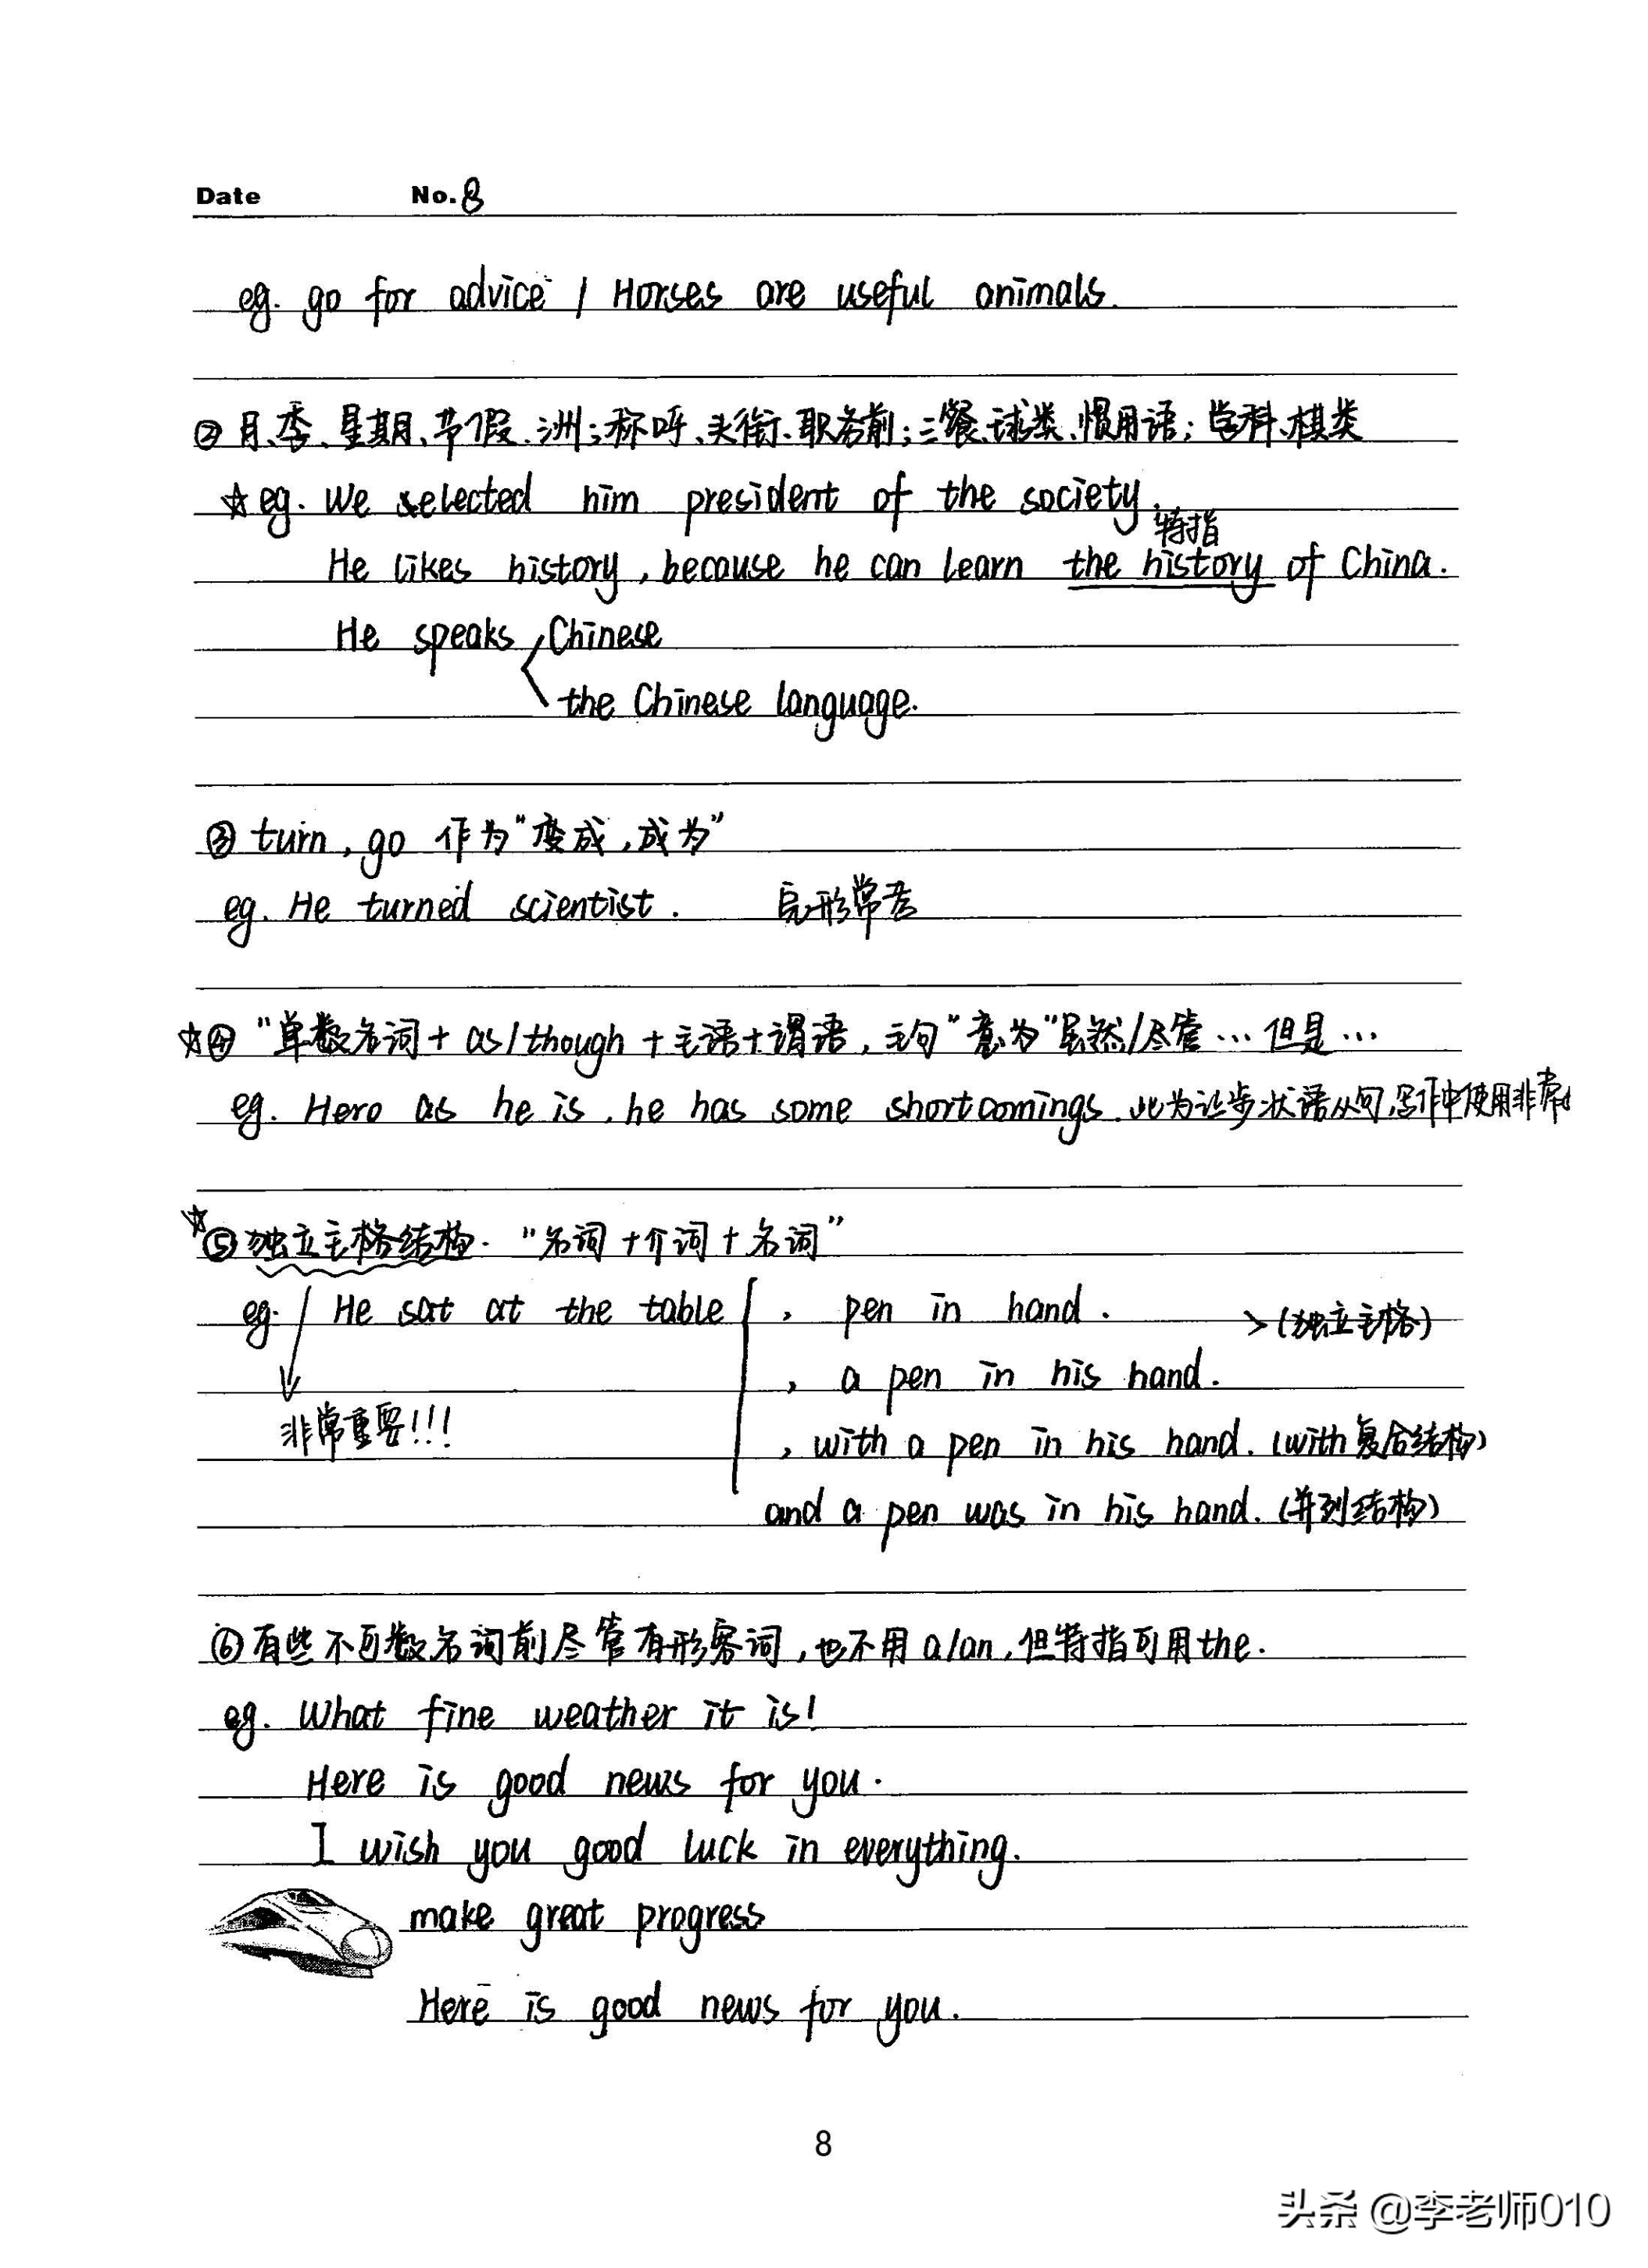 Date No. 8
eg. go for advice / Horses are useful animals.
② 月、季、星期、节假、洲;称呼、头衔、职务前;三餐、球类、惯用语;学科、棋类
☆ eg. We selected him president of the society.
特指
He likes history, because he can learn the history of China.
He speaks Chinese
the Chinese language.
③ turn, go 作为“变成,成为”
eg. He turned scientist. 完形常考
☆④ “单数名词+as/though+主语+谓语,主句”意为“虽然/尽管…但是…
eg. Hero as he is, he has some shortcomings. 此为让步状语从句,写作中使用非常
☆⑤ 独立主格结构. “名词+介词+名词”
eg. He sat at the table , pen in hand. >(独立主格)
, a pen in his hand.
非常重要!!! , with a pen in his hand. (with复合结构)
and a pen was in his hand. (并列结构)
⑥ 有些不可数名词前尽管有形容词,也不用a/an,但特指可用the.
eg. What fine weather it is!
Here is good news for you.
I wish you good luck in everything.
make great progress
Here is good news for you.
8
头条 @李老师010